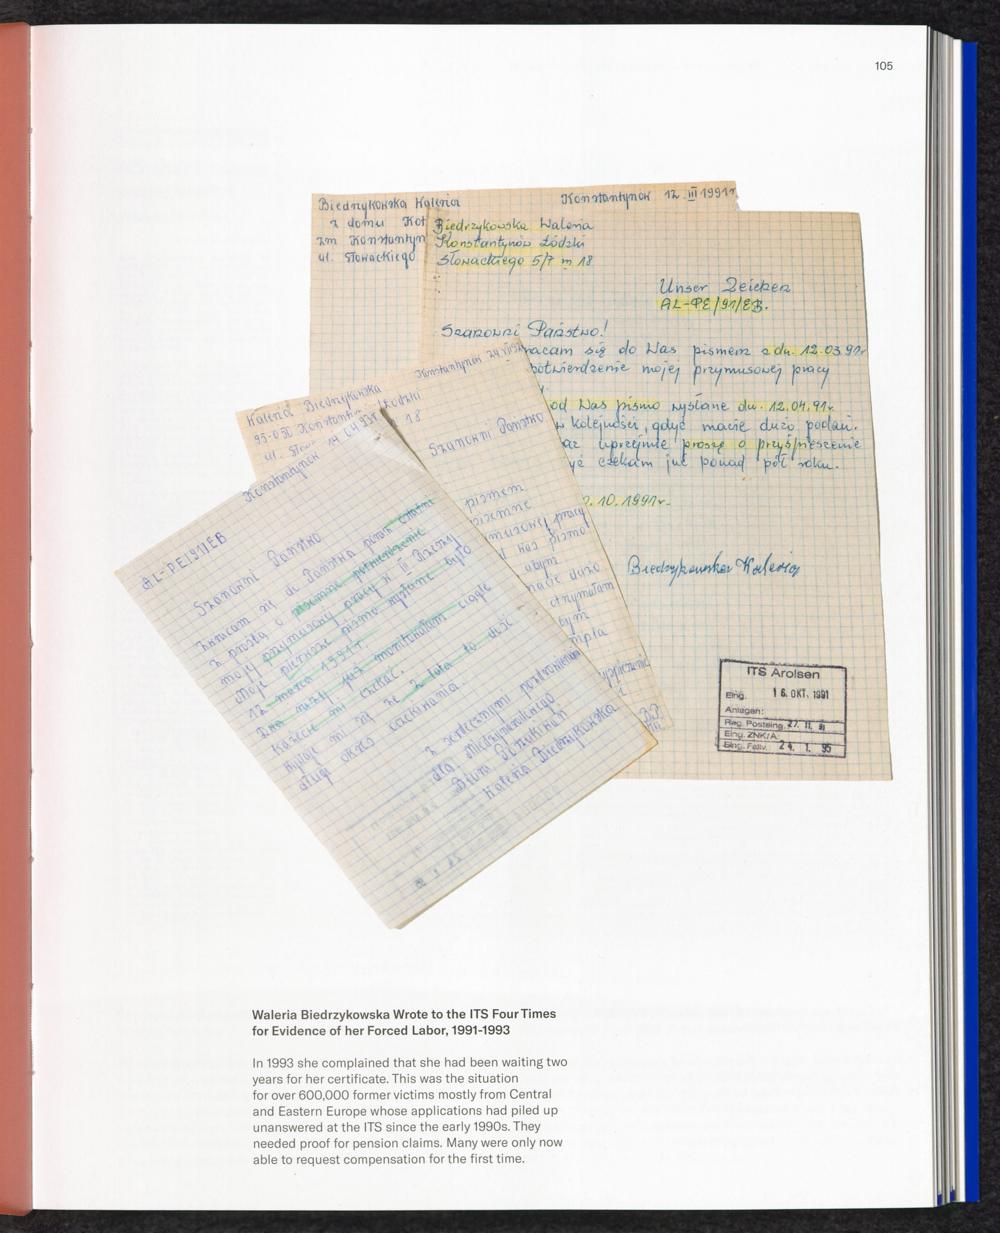 105
Biedrzykowska Waleria
Konstantynów 12 III 1991r.
z domu Kot
zm Konstantyn
ul. Słowackiego
Biedrzykowska Waleria
Konstantynów Łódzki
Słowackiego 5/7 m 18
Unser Zeichen
AL-PE/91/EB.
Szanowni Państwo!
racam się do Was pismem z dn. 12.03.91r.
potwierdzenie mojej przymusowej pracy
od Was pismo wysłane dn. 12.04.91r.
w kolejności, gdyż macie dużo podań.
az uprzejmie proszę o przyśpieszenie
yż czekam już ponad pół roku.
.10.1991r.
Biedrzykowska Waleria
ITS Arolsen
Eing. 16. OKT. 1991
Anlagen:
Reg. Posteing.
Eing. ZNK/A
24. 1. 95
Waleria Biedrzykowska
95-050 Konstantynów Łódzki
18
Szanowni Państwo
pismem
pracy
Was pismo
abym
macie dużo
otrzymałam
Konstantynów
AL-PE/91/EB
Szanowni Państwo
Zwracam się do Państwa
z prośbą o potwierdzenie
moją przymusowej pracy w III Rzeszy
moje pierwsze pismo wysłane było
12 marca 1991r.
monitowałam ciągle
czekać.
że 2 lata to dość
długi okres oczekiwania.
z serdecznymi pozdrowieniami
dla Międzynarodowego
Biura Poszukiwań
Waleria Biedrzykowska
Waleria Biedrzykowska Wrote to the ITS Four Times
for Evidence of her Forced Labor, 1991-1993
In 1993 she complained that she had been waiting two
years for her certificate. This was the situation
for over 600,000 former victims mostly from Central
and Eastern Europe whose applications had piled up
unanswered at the ITS since the early 1990s. They
needed proof for pension claims. Many were only now
able to request compensation for the first time.